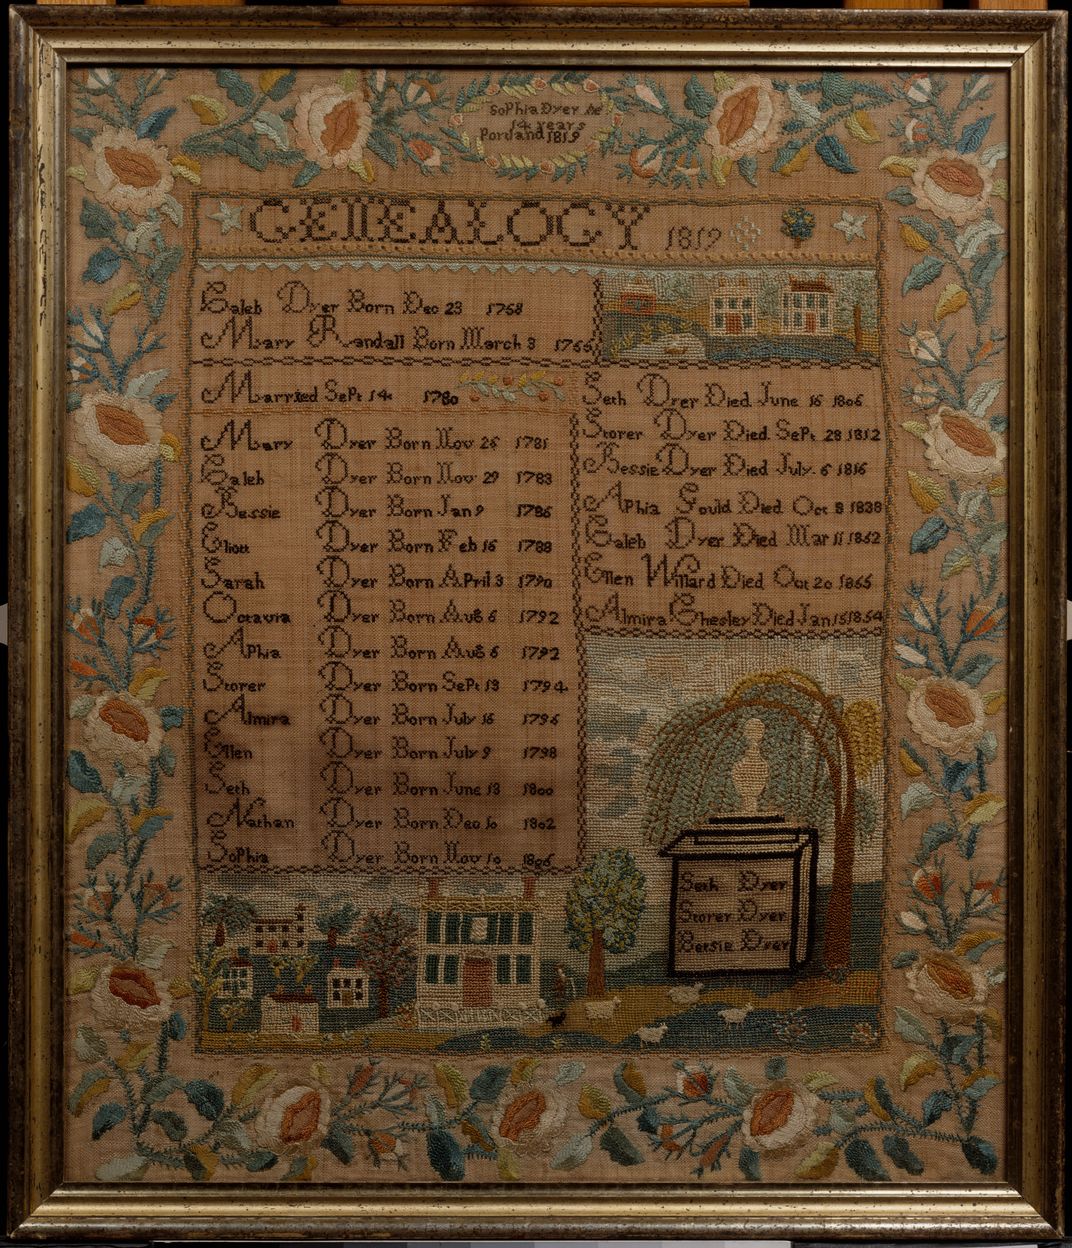 Sophia Dyer Ae
14 years
Portland 1819
GENEALOGY 1819
Caleb Dyer Born Dec 23 1758
Mary Randall Born March 3 1766
Married Sept 14 1780
Mary Dyer Born Nov 26 1781
Caleb Dyer Born Nov 29 1783
Bessie Dyer Born Jan 9 1786
Eliott Dyer Born Feb 16 1788
Sarah Dyer Born April 3 1790
Octavia Dyer Born Aug 6 1792
Aphia Dyer Born Aug 6 1792
Storer Dyer Born Sept 13 1794
Almira Dyer Born July 16 1796
Ellen Dyer Born July 9 1798
Seth Dyer Born June 13 1800
Nathan Dyer Born Dec 10 1802
Sophia Dyer Born Nov 10 1806
Seth Dyer Died June 16 1806
Storer Dyer Died Sept 28 1812
Bessie Dyer Died July 6 1816
Aphia Gould Died Oct 8 1838
Caleb Dyer Died Mar 11 1862
Ellen Willard Died Oct 20 1865
Almira Chesley Died Jan 15 1854
Seth Dyer
Storer Dyer
Betsie Dyer